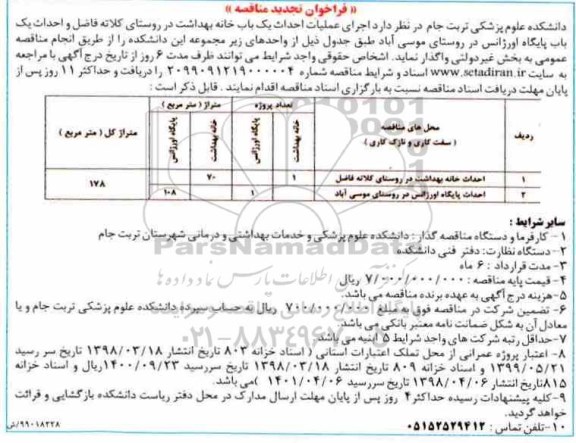 « فراخوان تجدید مناقصه »
دانشکده علوم پزشکی تربت جام در نظر دارد اجرای عملیات احداث یک باب خانه بهداشت در روستای کلاته فاضل و احداث یک
باب پایگاه اورژانس در روستای موسی آباد طبق جدول ذیل از واحدهای زیر مجموعه این دانشکده را از طریق انجام مناقصه
عمومی به بخش غیردولتی واگذار نماید. اشخاص حقوقی واجد شرایط می توانند ظرف مدت ۶ روز از تاریخ درج آگهی با مراجعه
به سایت www.setadiran.ir اسناد و شرایط مناقصه شماره ۲۰۹۹۰۹۱۲۱۹۰۰۰۰۰۴ را دریافت و حداکثر ۱۱ روز پس از
پایان مهلت دریافت اسناد مناقصه نسبت به بارگزاری اسناد مناقصه اقدام نمایند . قابل ذکر است :
ردیف
محل های مناقصه
( سفت کاری و نازک کاری )
تعداد پروژه
خانه بهداشت
پایگاه اورژانس
متراژ ( متر مربع )
خانه بهداشت
پایگاه اورژانس
متراژ کل ( متر مربع )
۱ احداث خانه بهداشت در روستای کلاته فاضل ۱ ۷۰
۲ احداث پایگاه اورژانس در روستای موسی آباد ۱ ۱۰۸
۱۷۸
سایر شرایط :
۱- کارفرما و دستگاه مناقصه گذار : دانشکده علوم پزشکی و خدمات بهداشتی و درمانی شهرستان تربت جام
۲- دستگاه نظارت: دفتر فنی دانشکده
۳- مدت قرارداد : ۶ ماه
۴- قیمت پایه مناقصه : ۷/۰۰۰/۰۰۰/۰۰۰ ریال
۵- هزینه درج آگهی به عهده برنده مناقصه می باشد.
۶- تضمین شرکت در مناقصه فوق به مبلغ ۷۱۰/۰۰۰/۰۰۰ ریال به حساب سپرده دانشکده علوم پزشکی تربت جام و یا
معادل آن به شکل ضمانت نامه معتبر بانکی می باشد.
۷- حداقل رتبه شرکت های واجد شرایط ۵ ابنیه می باشد.
۸- اعتبار پروژه عمرانی از محل تملک اعتبارات استانی ( اسناد خزانه ۸۰۳ تاریخ انتشار ۱۳۹۸/۰۳/۱۸ تاریخ سر رسید
۱۳۹۹/۰۵/۲۱ و اسناد خزانه ۸۰۹ تاریخ انتشار ۱۳۹۸/۰۳/۱۸ تاریخ سررسید ۱۴۰۰/۰۹/۲۳ریال و اسناد خزانه
۸۱۵تاریخ انتشار ۱۳۹۸/۰۴/۰۶ تاریخ سررسید ۱۴۰۱/۰۴/۰۶ )می باشد.
۹- کلیه پیشنهادات رسیده حداکثر۴ روز پس از پایان مهلت ارسال مدارک در محل دفتر ریاست دانشکده بازگشایی و قرائت
خواهد گردید.
۱۰- تلفن تماس : ۰۵۱۵۲۵۲۹۴۱۲
۹۹۰۱۸۲۲۸/ش
ParsNamadData